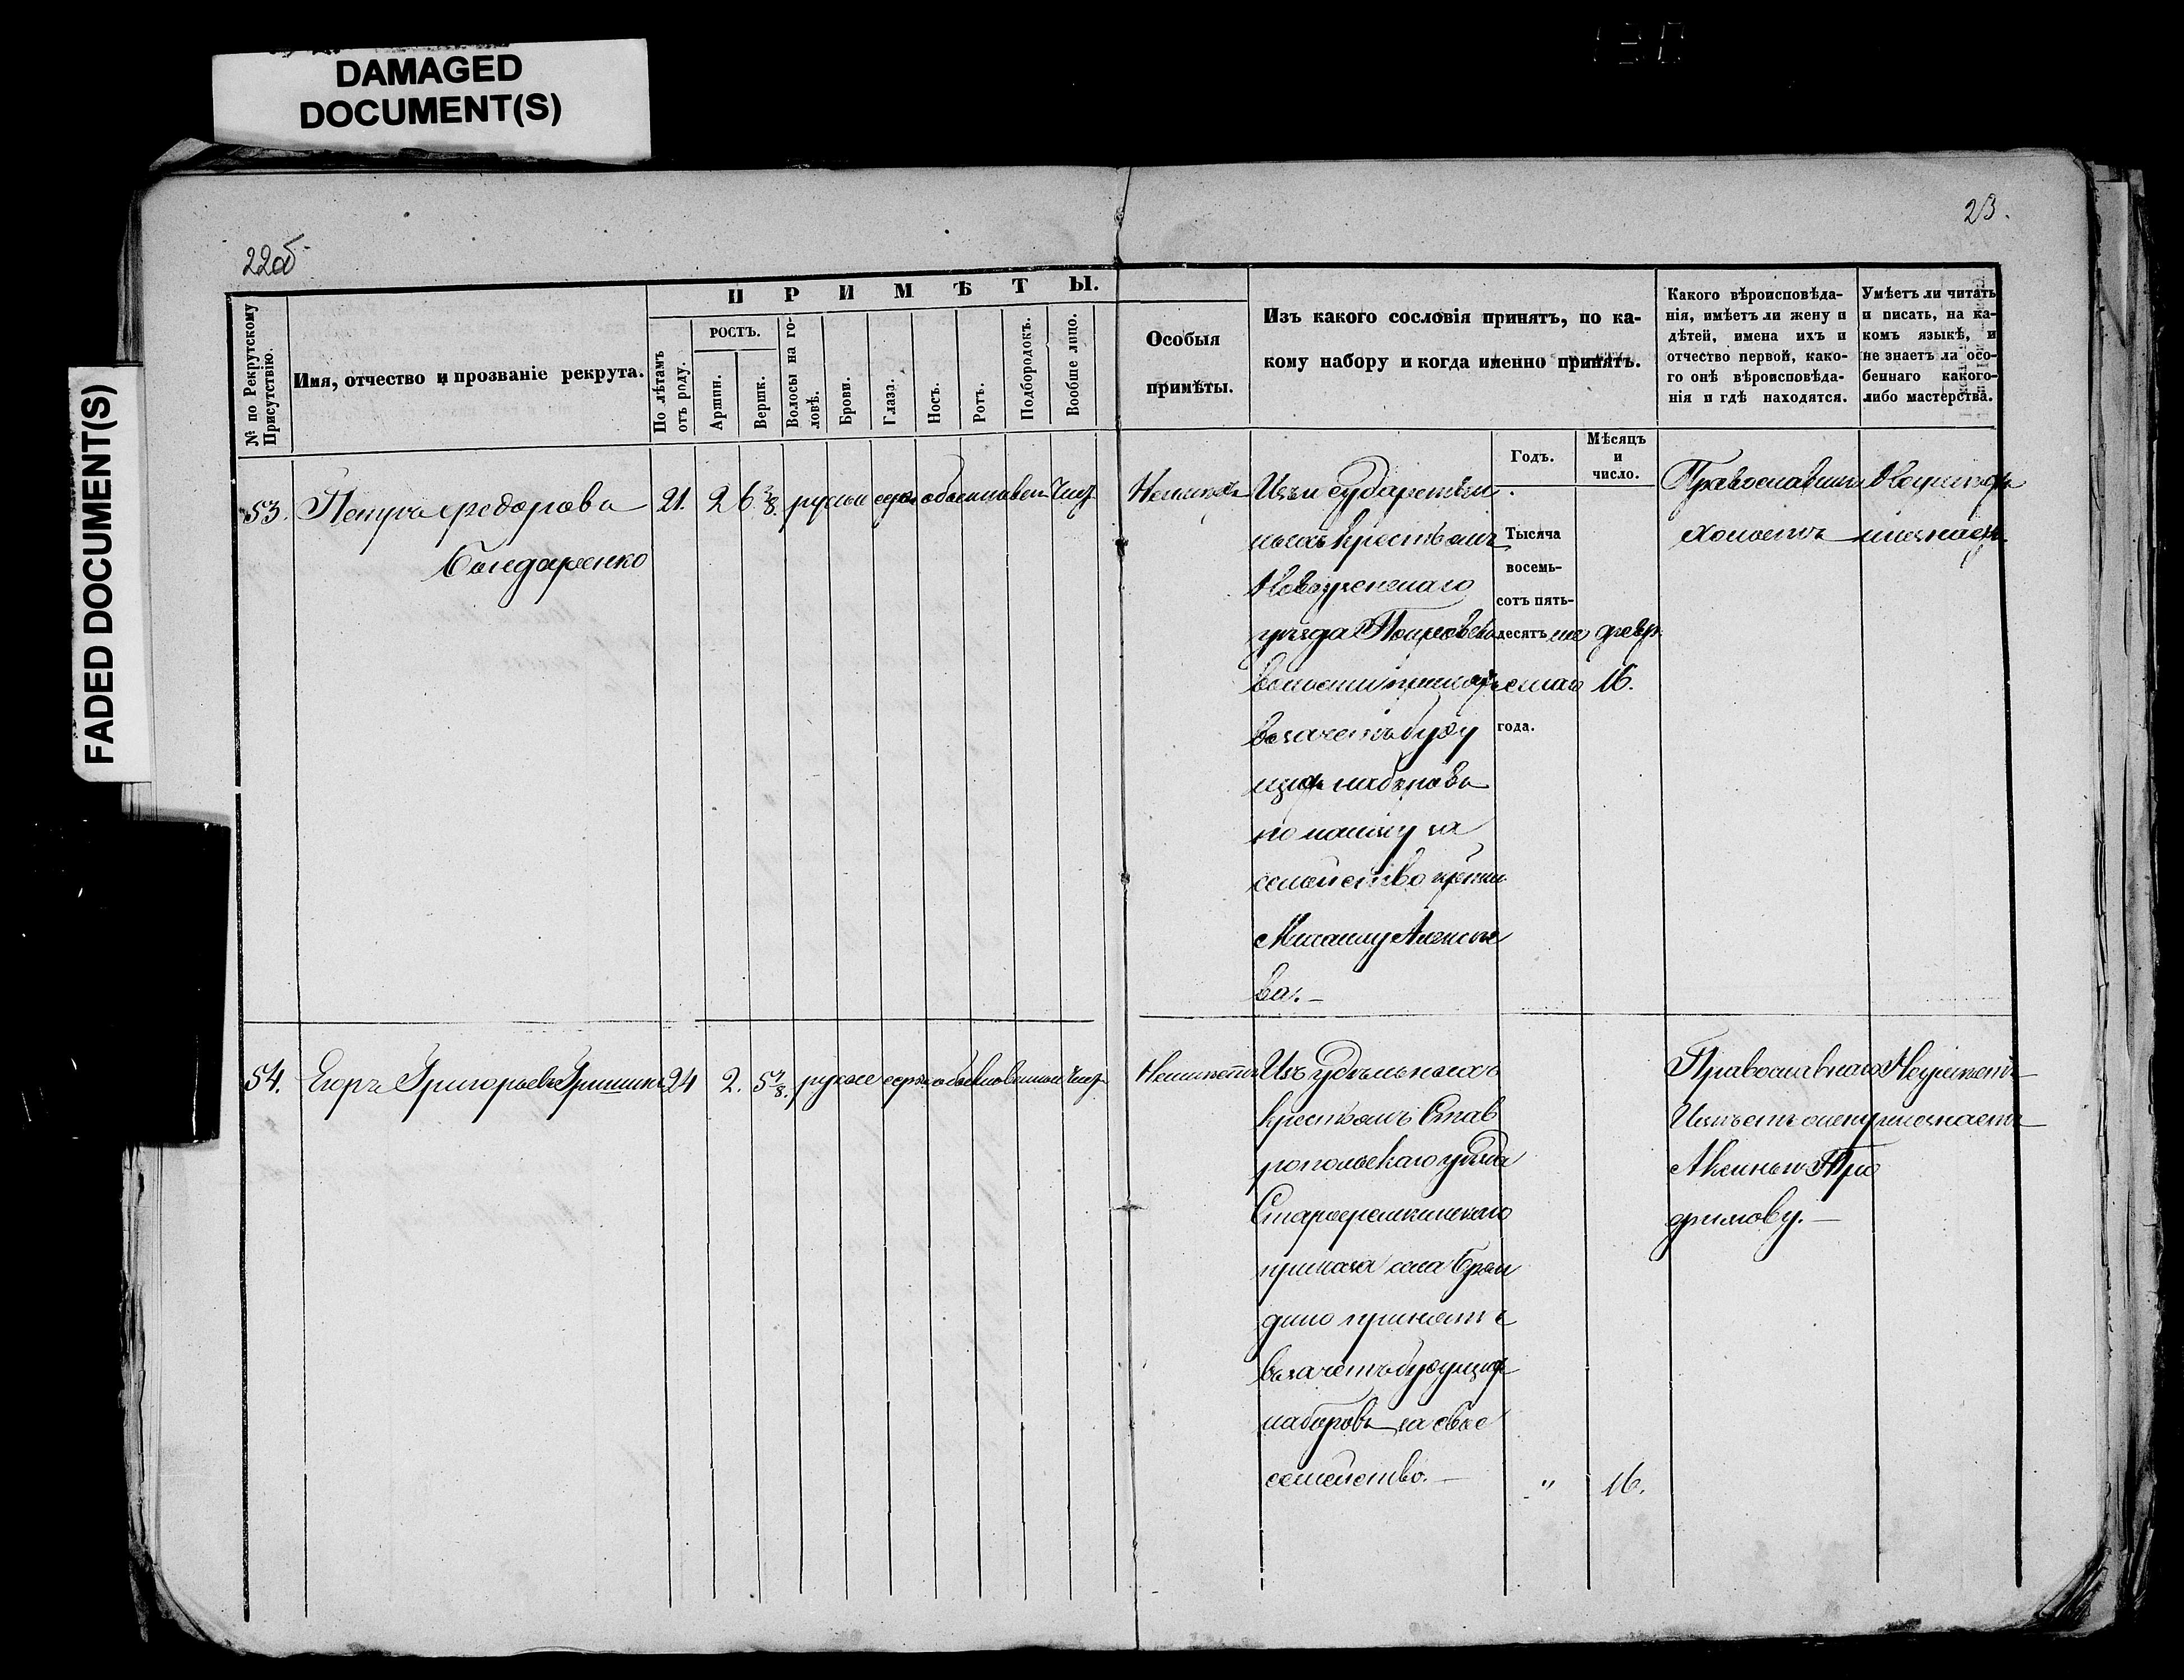 DAMAGED
DOCUMENT(S)
FADED DOCUMENT(S)
22об
23.
№ по Рекрутскому Присутствію.
Имя, отчество и прозваніе рекрута.
ПРИМѢТЫ.
По лѣтамъ отъ роду.
РОСТЪ.
Аршин.
Вершк.
Волосы на го-
ловѣ.
Брови.
Глаза.
Носъ.
Ротъ.
Подбородокъ.
Вообще лицо.
Особыя
примѣты.
Изъ какого сословія принятъ, по ка-
кому набору и когда именно принятъ.
Годъ.
Мѣсяцъ
и
число.
Какого вѣроисповѣда-
нія, имѣетъ ли жену и
дѣтей, имена ихъ и
отчество первой, како-
го онѣ вѣроисповѣда-
нія и гдѣ находятся.
Умѣетъ ли читать
и писать, на ка-
комъ языкѣ, и
не знаетъ ли осо-
беннаго какого-
либо мастерства.
53. Петръ Федоровъ
Бондаренко
21. 2 6 3/8. русые серые обыкновен чист
Неимѣетъ
Изъ государствен
ныхъ крестьянъ
Новоузенскаго
уѣзда Покровской
волости принятъ
въ зачетъ буду
щихъ наборовъ
по найму за
семейство
Михаилу
ва.
Тысяча
восемь-
сотъ пять-
десятъ
года.
февр.
16.
Православнаго
холостъ
Неумѣетъ
и незнаетъ
54. Егоръ Григорьевъ Гришинъ 24 2. 5 7/8. русые серые обыкновенные чист
Неимѣетъ
Изъ удѣльныхъ
крестьянъ Став
ропольскаго уѣзда
Старо
приказа села
дино принятъ
въ зачетъ будущихъ
наборовъ за свое
семейство.
" 16.
Православнаго
Имѣетъ жену
Аксинью Тро
фимову.
Неумѣетъ
и незнаетъ